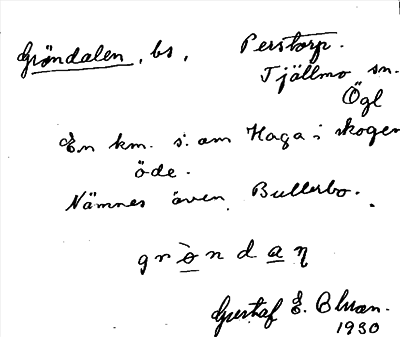 Gröndalen, bs, Perstorp.
Tjällmo sn.
Ögl
En km. s. om Haga i skogen
öde.
Nämnes även Bullerbo.
grö̀ndaṇ
Gustaf E. Blman.
1930